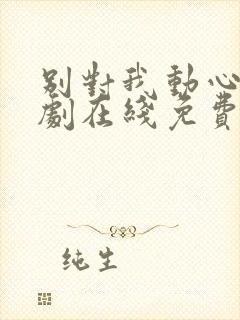 别對我動心
劇在綫免費
純生